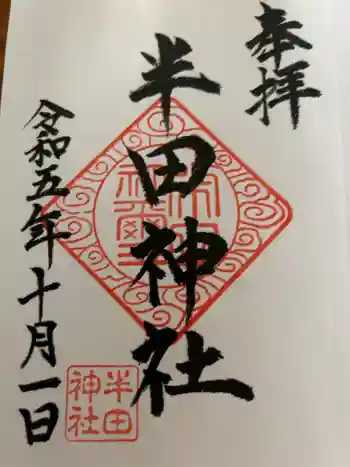 奉拝
半田神社
令和五年十月一日
半田
神社